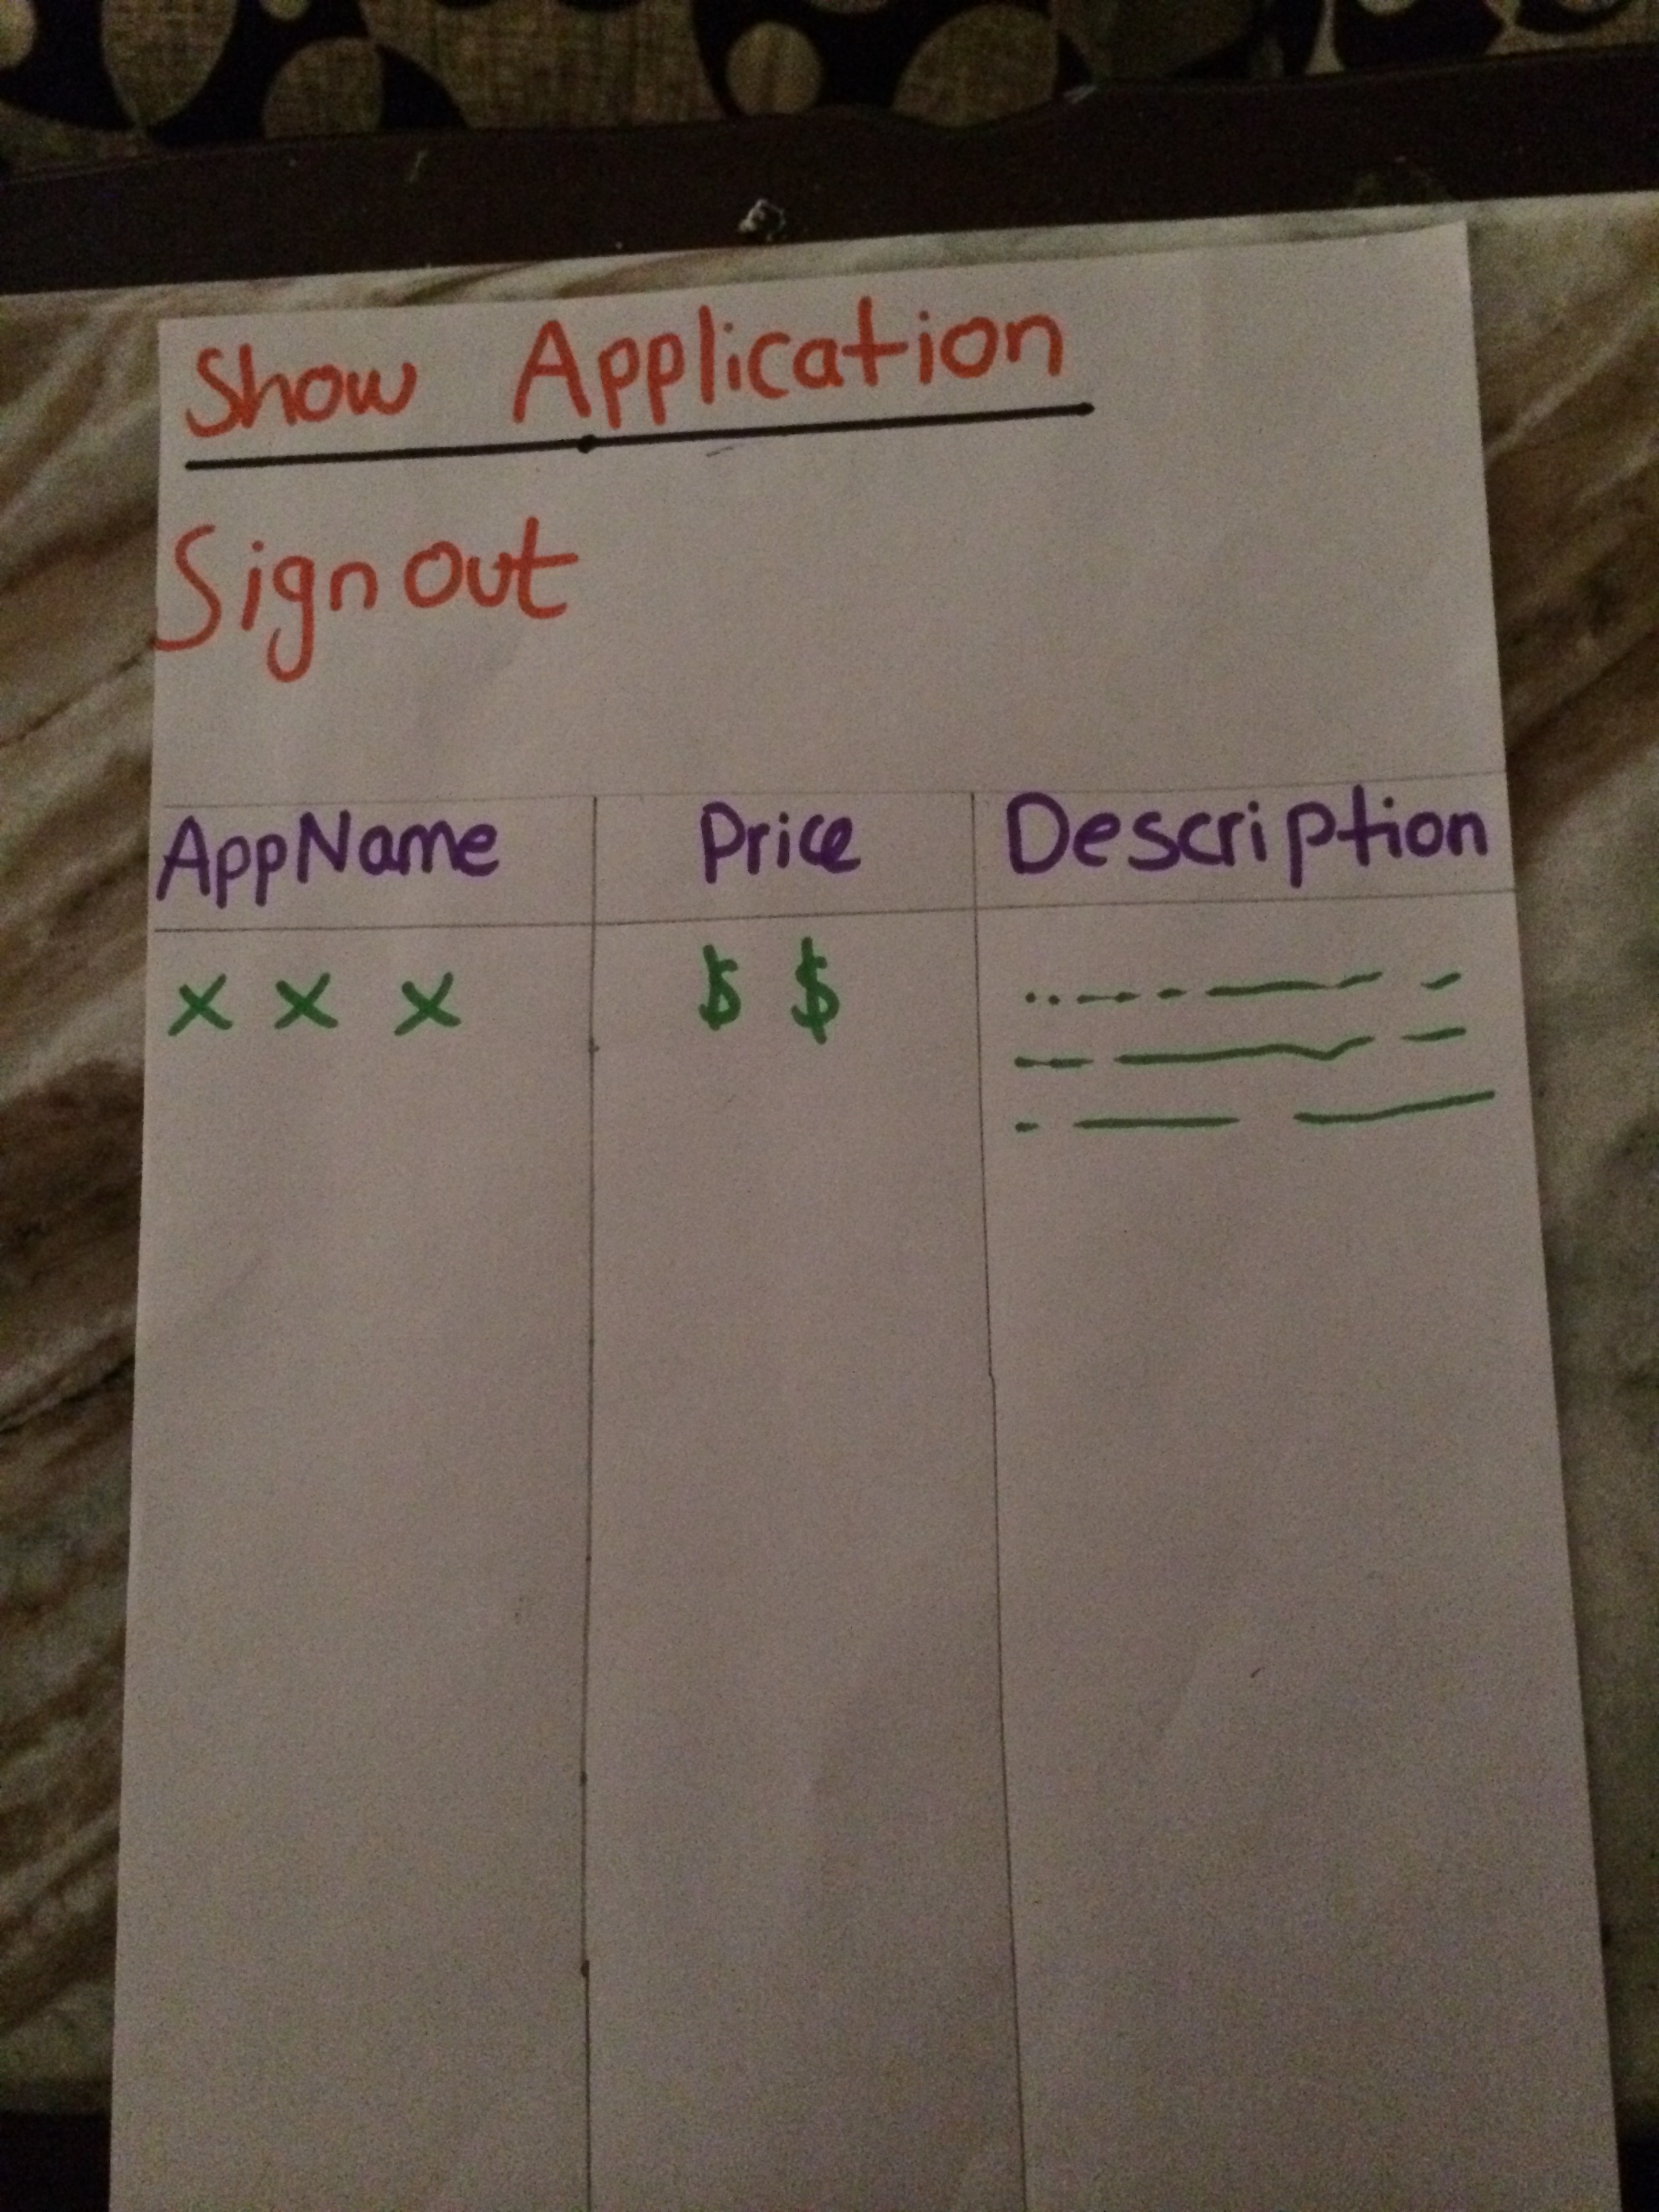 Show Application
Sign Out
AppName Price Description
x x x $ $